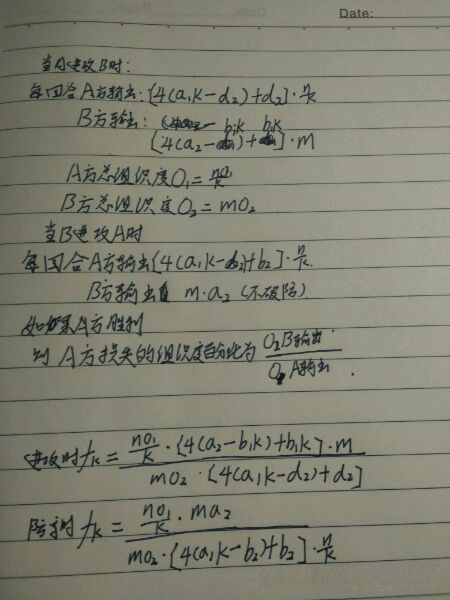 Date:
当A进攻B时:
每回合A方输出:[4(a₁k-d₂)+d₂]·n/k
B方输出: b₁k b₁k
[4(a₂- )+ ]·m
A方总组织度O₁=no₁/k
B方总组织度O₂=mo₂
当B进攻A时
每回合A方输出[4(a₁k-b₂)+b₂]·n/k.
B方输出 m·a₂ (不破防)
如果A方胜利
则A方损失的组织度百分比为 O₂B输出/O₁A输出.
进攻时fₖ= no₁/k·[4(a₂-b₁k)+b₁k]·m / mo₂·[4(a₁k-d₂)+d₂]
防守时fₖ= no₁/k·ma₂ / mo₂·[4(a₁k-b₂)+b₂]·n/k